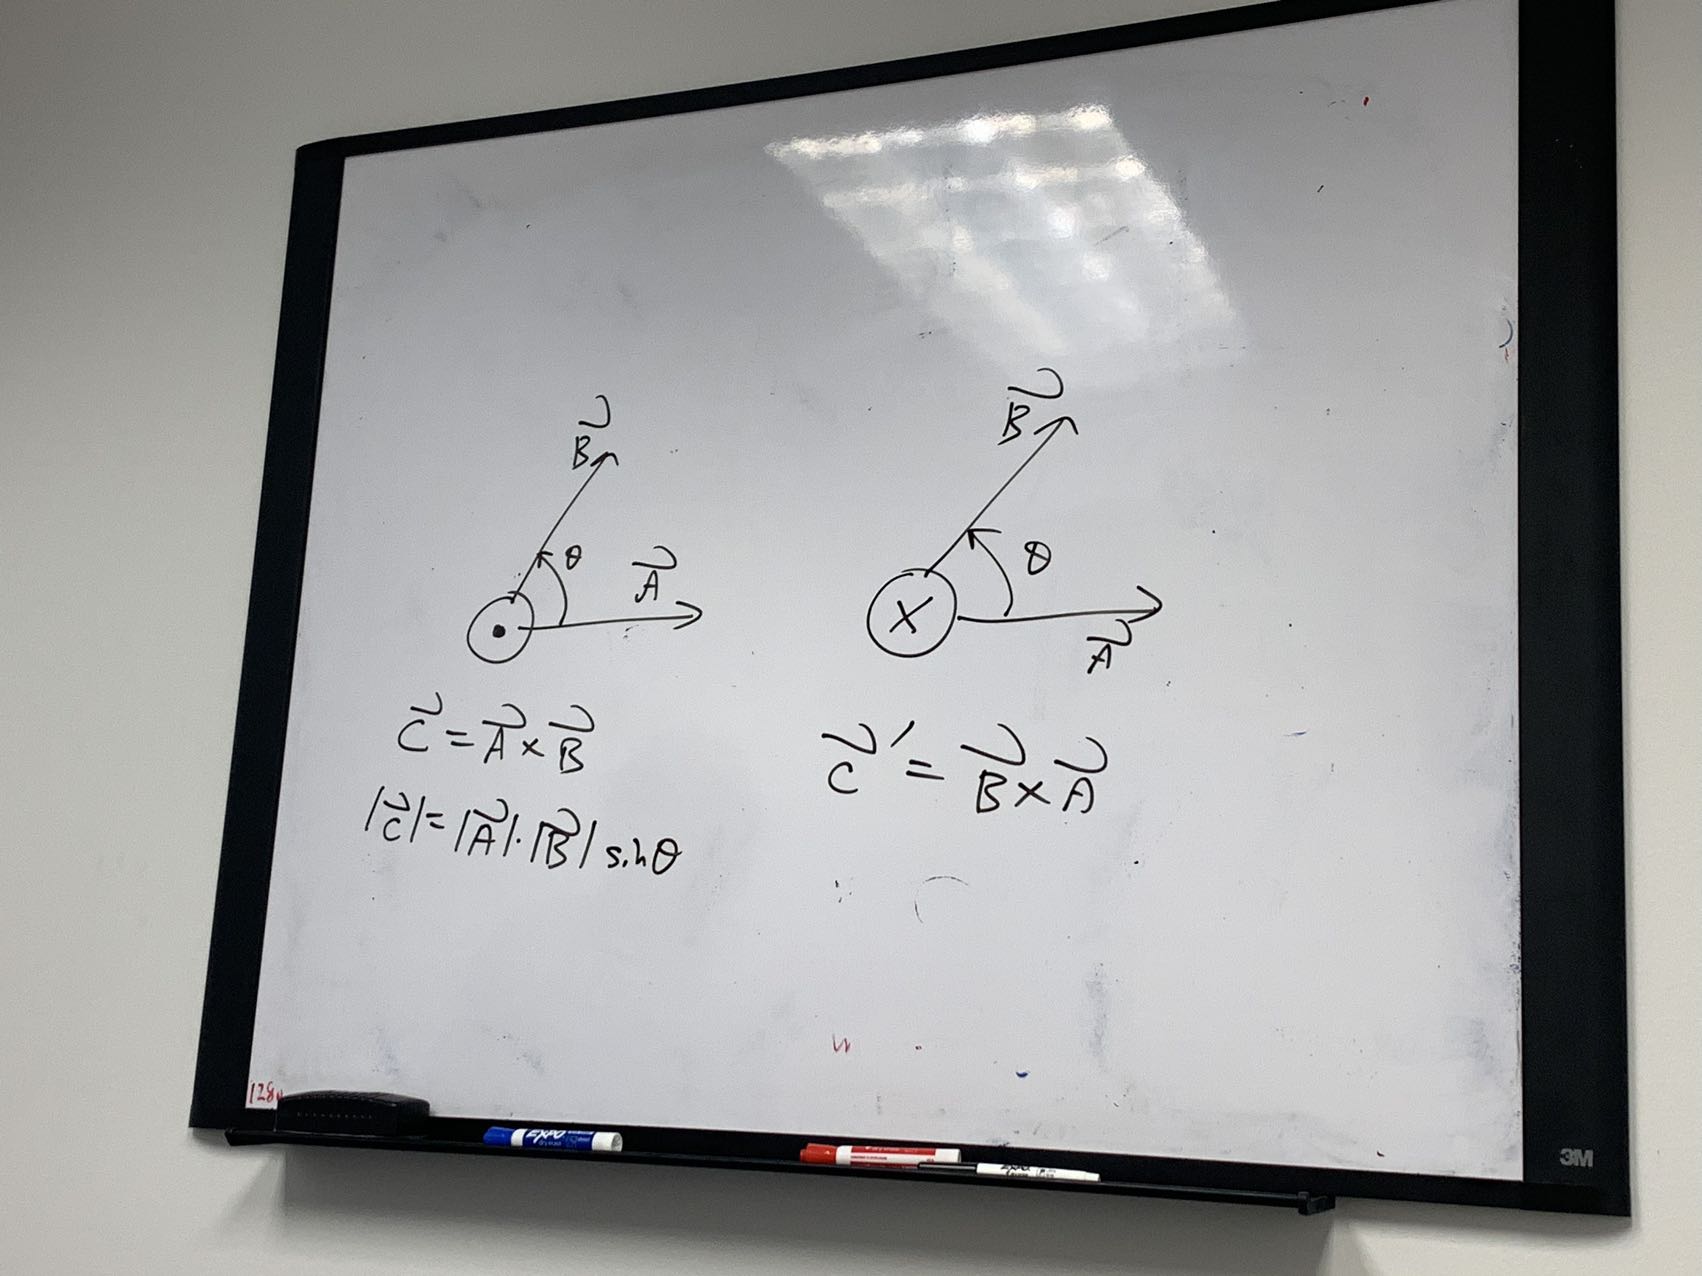 B⃗
θ
A⃗
C⃗ = A⃗ × B⃗
|C⃗| = |A⃗| · |B⃗| sinθ
B⃗
θ
X
A⃗
C⃗′ = B⃗ × A⃗
128
EXPO
3M